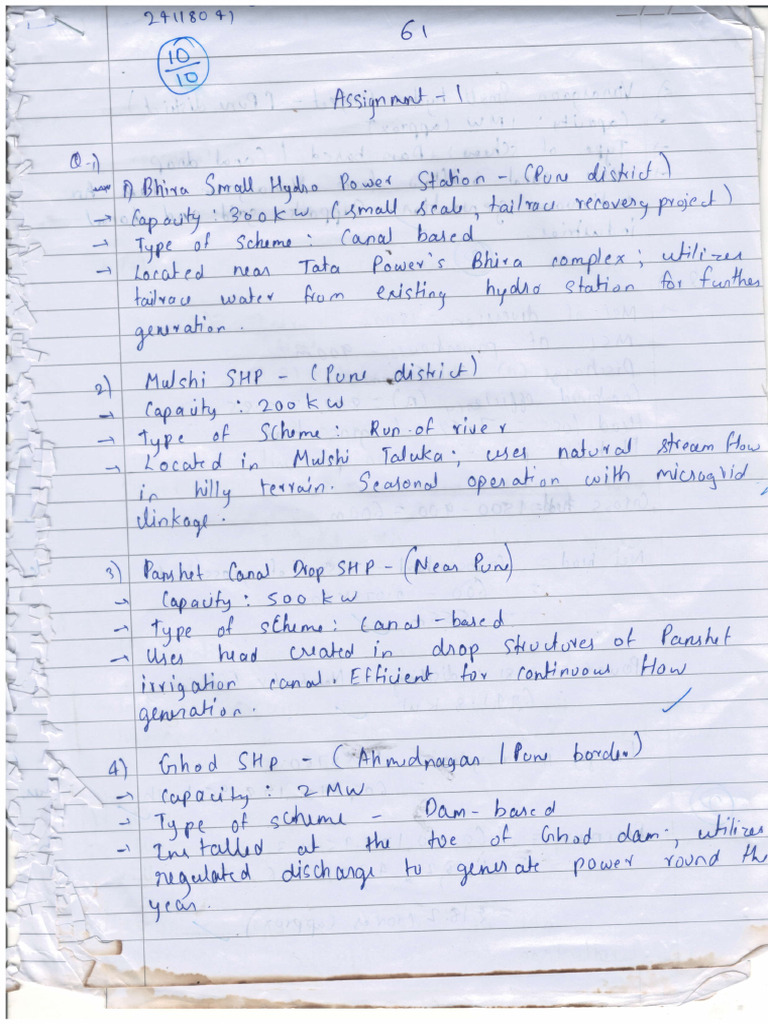 24118041
61
10
10
Assignment - 1
Q-1)
1) Bhira Small Hydro Power Station - (Pune district)
→ Capacity : 300 kW (small scale, tailrace recovery project)
→ Type of scheme : Canal based
→ Located near Tata Power's Bhira complex; utilizes
tailrace water from existing hydro station for further
generation.
2) Mulshi SHP - (Pune district)
→ Capacity : 200 kW
→ Type of Scheme : Run of river
→ Located in Mulshi Taluka; uses natural stream flow
in hilly terrain. Seasonal operation with microgrid
linkage.
3) Panshet Canal Drop SHP - (Near Pune)
→ Capacity : 500 kW
→ Type of scheme : Canal-based
→ Uses head created in drop structures of Panshet
irrigation canal. Efficient for continuous flow
generation.
4) Ghod SHP - (Ahmednagar / Pune border)
→ Capacity : 2 MW
→ Type of scheme - Dam-based
→ Installed at the toe of Ghod dam; utilizes
regulated discharge to generate power round the
year.